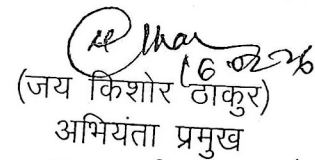 16.02.26
(जय किशोर ठाकुर)
अभियंता प्रमुख